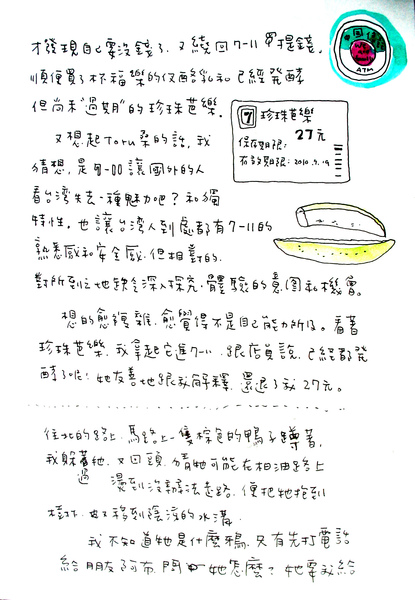 才發現自己要沒錢了.又繞回7-11 提錢.
順便買了杯福樂的仅酪乳和已經発酵
但尚未"過期"的珍珠芭樂.
ATM
7 珍珠芭樂
27元
保存期限:
有效期限:2010.9.19
又想起Toru桑的話.我
猜想.是 讓國外的人
看台湾失去一種魅力吧?和獨
特性.也讓台湾人到處都有7-11的
熟悉感和安全感.但相對的.
對所到之地缺乏深入探究.體驗的意圖和機會.
想的愈複雜.愈覺得不是自己能力所及.看著
珍珠芭樂.我拿起它進7-11.跟店員說.已經都発
酵了呢!她友善地跟我解釋.還退了我27元。
往北的路上.馬路上一隻棕色的鴨子蹲著.
我躲過牠.又回頭.猜牠可能在柏油路上
燙到沒辦法走路.便把牠抱到
樹林.也又移到陰涼的水溝.
我不知道牠是什麼鴉.又有先打電話
給朋友阿布.問 牠怎麼?她要我給